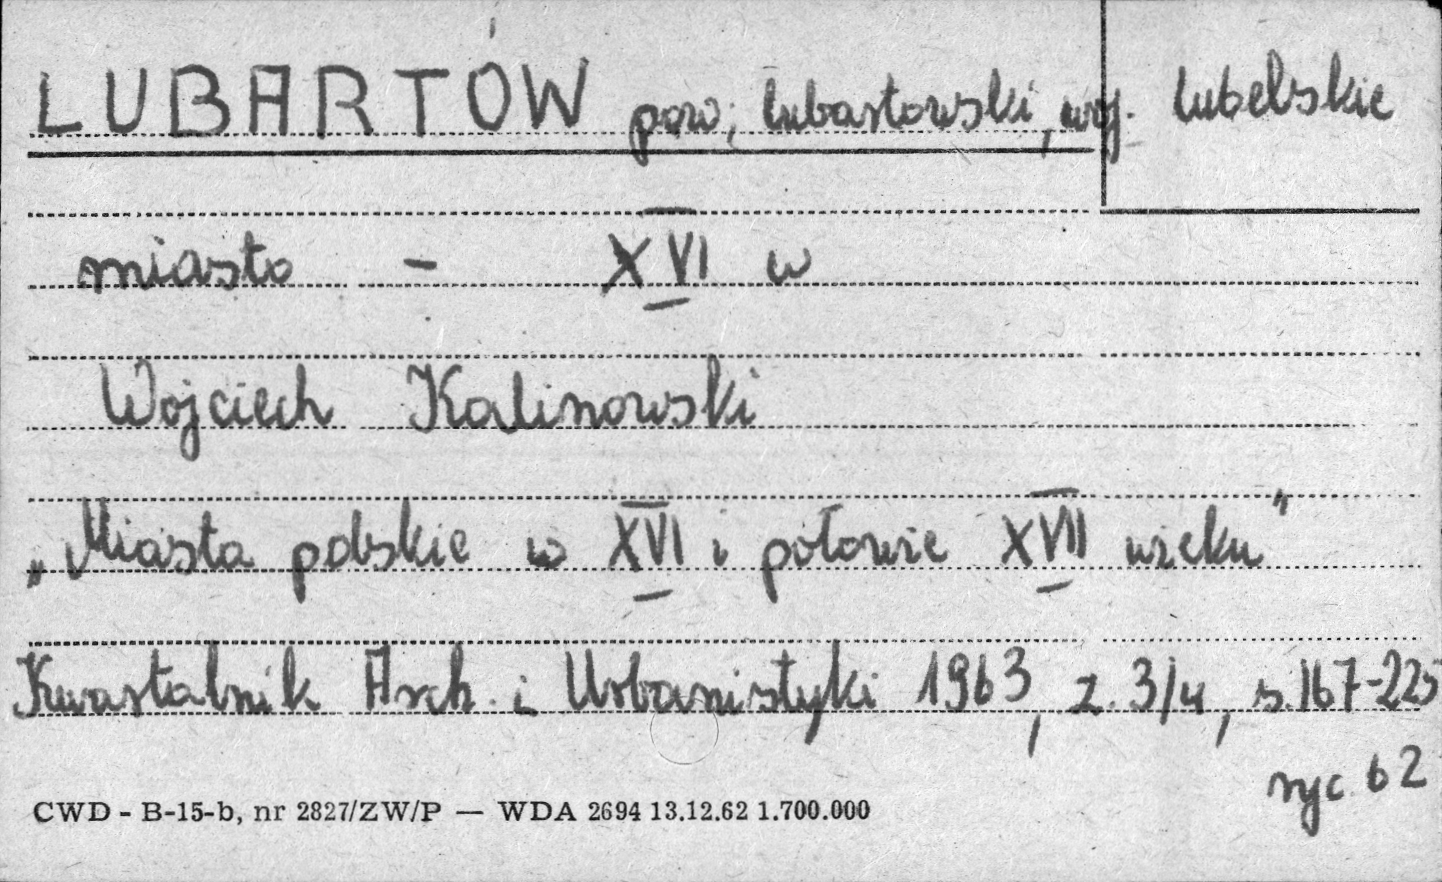 LUBARTÓW pow. lubartowski, woj. lubelskie
miasto - XVI w
Wojciech Kalinowski
„Miasta polskie w XVI i połowie XVII wieku"
Kwartalnik Arch. i Urbanistyki 1963, z. 3/4, s. 167-225
ryc 62
CWD - B-15-b, nr 2827/ZW/P — WDA 2694 13.12.62 1.700.000